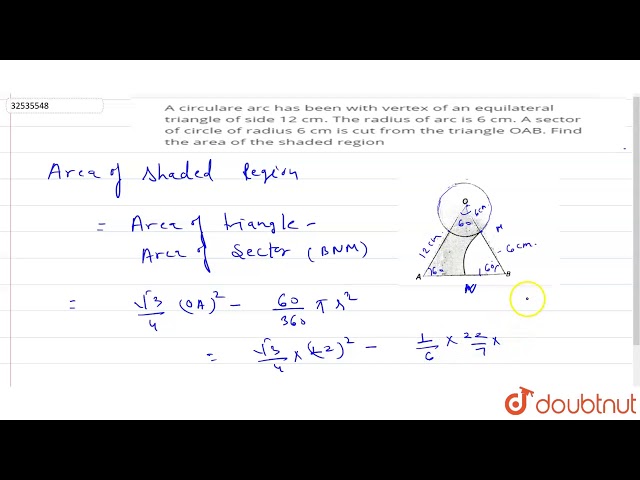 32535548
A circulare arc has been with vertex of an equilateral
triangle of side 12 cm. The radius of arc is 6 cm. A sector
of circle of radius 6 cm is cut from the triangle OAB. Find
the area of the shaded region
Area of shaded Region
= Area of triangle -
Area of Sector (BNM)
= √3/4 (OA)² - 60/360 π r²
= √3/4 × (12)² - 1/6 × 22/7 ×
O
6cm
60
12cm.
M
6cm.
A
60
60°
B
N
doubtnut